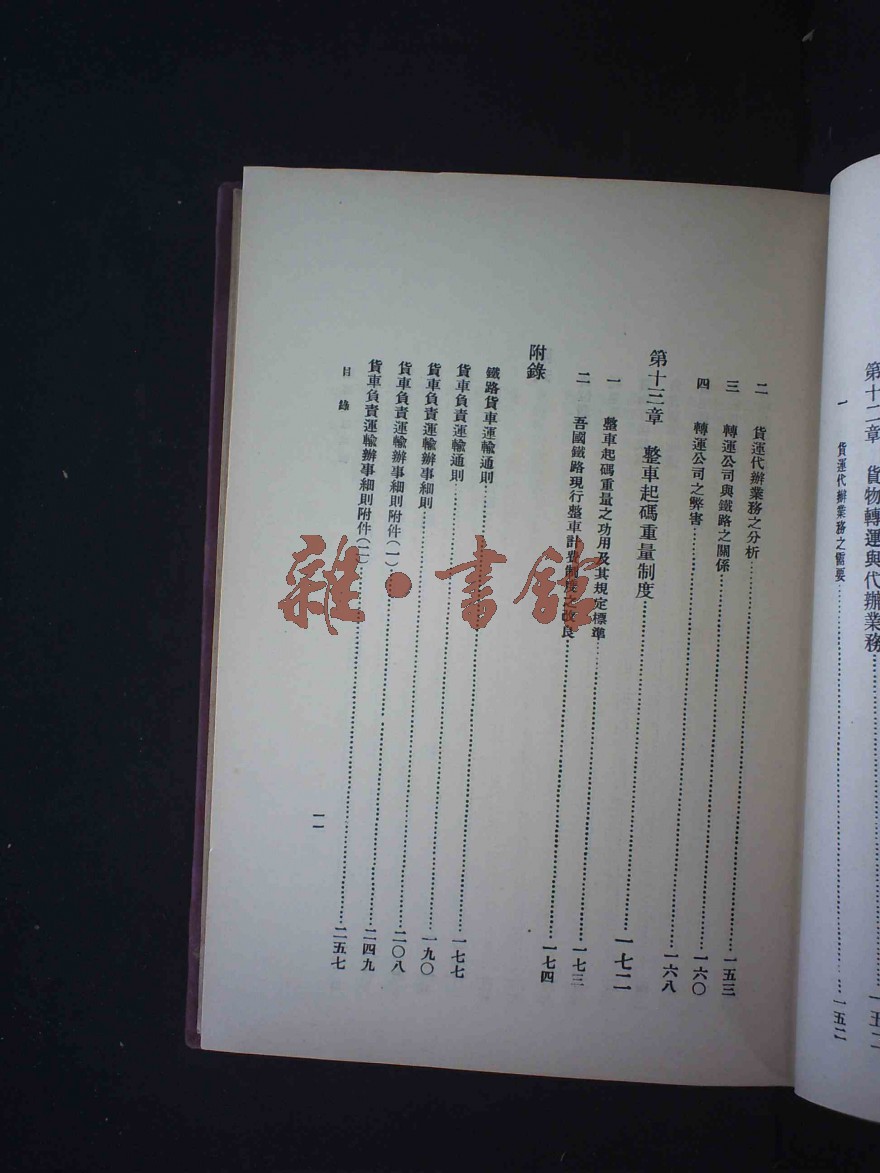 第十二章　貨物轉運與代辦業務……一五二
一　貨運代辦業務之需要……一五二
二　貨運代辦業務之分析……一五三
三　轉運公司與鐵路之關係……一六〇
四　轉運公司之弊害……一六八
第十三章　整車起碼重量制度……一七二
一　整車起碼重量之功用及其規定標準……一七三
二　吾國鐵路現行整車計費制度之改良……一七四
附錄
鐵路貨車運輸通則……一七七
貨車負責運輸通則……一九〇
貨車負責運輸辦事細則……二〇八
貨車負責運輸辦事細則附件(一)……二四九
貨車負責運輸辦事細則附件(二)……二五七
目錄　一一
雜·書館